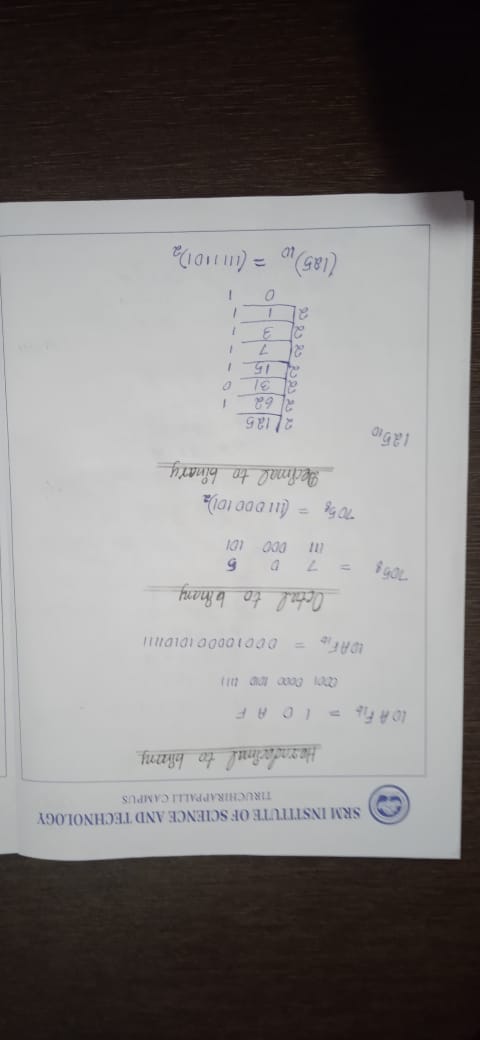 SRM INSTITUTE OF SCIENCE AND TECHNOLOGY
TIRUCHIRAPPALLI CAMPUS
Hexadecimal to binary
10AF₁₆ = 1 0 A F
0001 0000 1010 1111
10AF₁₆ = 0001000010101111
Octal to binary
705₈ = 7 0 5
111 000 101
705₈ = (111000101)₂
Decimal to binary
125₁₀
2 125
2 62 1
2 31 0
2 15 1
2 7 1
2 3 1
2 1 1
0 1
(125)₁₀ = (1111101)₂